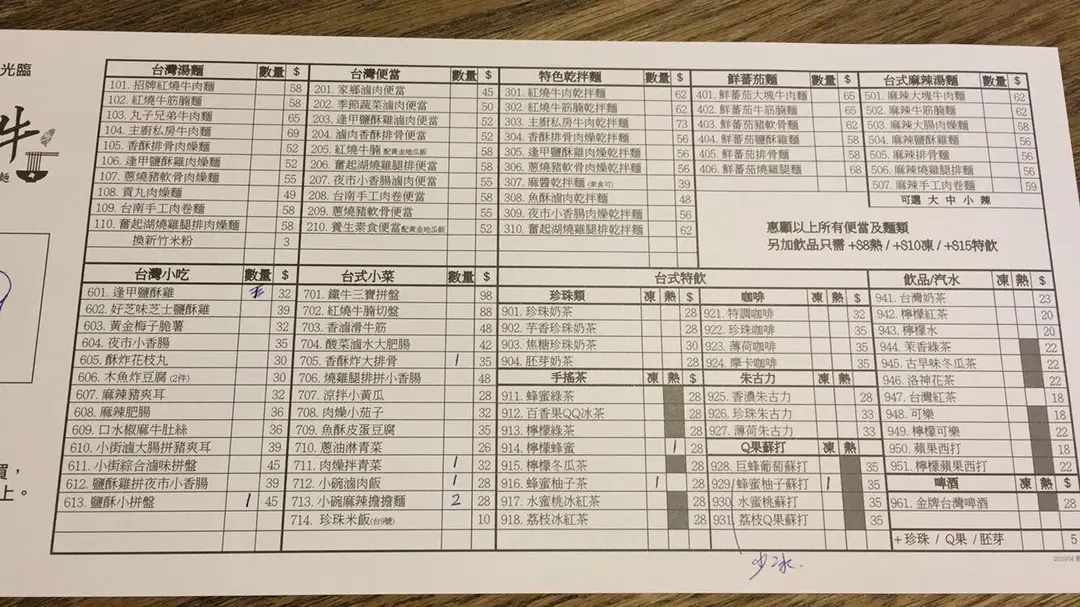 光臨
牛
麵
台灣湯麵 數量 $
101. 招牌紅燒牛肉麵 58
102. 紅燒牛筋腩麵 58
103. 丸子兄弟牛肉麵 65
104. 主廚私房牛肉麵 69
105. 香酥排骨肉燥麵 52
106. 逢甲鹽酥雞肉燥麵 52
107. 蔥燒豬軟骨肉燥麵 55
108. 貢丸肉燥麵 49
109. 台南手工肉卷麵 58
110. 奮起湖燒雞腿排肉燥麵 58
換新竹米粉 3
台灣便當 數量 $
201. 家鄉滷肉便當 45
202. 季節蔬菜滷肉便當 50
203. 逢甲鹽酥雞滷肉便當 52
204. 滷肉香酥排骨便當 52
205. 紅燒牛腩 配黃金地瓜飯 58
206. 奮起湖燒雞腿排便當 58
207. 夜市小香腸滷肉便當 55
208. 台南手工肉卷便當 58
209. 蔥燒豬軟骨便當 55
210. 養生素食便當 配黃金地瓜飯 52
特色乾拌麵 數量 $
301. 紅燒牛肉乾拌麵 62
302. 紅燒牛筋乾拌麵 62
303. 主廚私房牛肉乾拌麵 73
304. 香酥排骨肉燥乾拌麵 56
305. 逢甲鹽酥雞肉燥乾拌麵 56
306. 蔥燒豬軟骨肉燥乾拌麵 56
307. 麻醬乾拌麵 (素食可) 39
308. 魚酥滷肉乾拌麵 48
309. 夜市小香腸肉燥乾拌麵 56
310. 奮起湖燒雞腿乾拌麵 62
鮮蕃茄麵 數量 $
401. 鮮蕃茄大塊牛肉麵 65
402. 鮮蕃茄牛筋腩麵 65
403. 鮮蕃茄豬軟骨麵 62
404. 鮮蕃茄鹽酥雞麵 58
405. 鮮蕃茄排骨麵 58
406. 鮮蕃茄燒雞腿麵 68
台式麻辣湯麵 數量 $
501. 麻辣大塊牛肉麵 62
502. 麻辣牛筋腩麵 62
503. 麻辣大腸肉燥麵 58
504. 麻辣鹽酥雞麵 56
505. 麻辣排骨麵 56
506. 麻辣燒雞腿麵 58
507. 麻辣手工肉卷麵 59
可選 大 中 小 辣
惠顧以上所有便當及麵類
另加飲品只需 +$8熱 / +$10凍 / +$15特飲
台灣小吃 數量 $
601. 逢甲鹽酥雞 32
602. 好芝味芝士鹽酥雞 39
603. 黃金梅子脆薯 32
604. 夜市小香腸 35
605. 酥炸花枝丸 30
606. 木魚炸豆腐 (2件) 30
607. 麻辣豬爽耳 32
608. 麻辣肥腸 36
609. 口水椒麻牛肚絲 36
610. 小街滷大腸拼豬爽耳 39
611. 小街綜合滷味拼盤 45
612. 鹽酥雞拼夜市小香腸 39
613. 鹽酥小拼盤 1 45
台式小菜 數量 $
701. 鐵牛三寶拼盤 98
702. 紅燒牛腩切盤 88
703. 香滷滑牛筋 48
704. 酸菜滷水大肥腸 42
705. 香酥炸大排骨 1 35
706. 燒雞腿排拼小香腸 48
707. 涼拌小黃瓜 28
708. 肉燥小茄子 32
709. 魚酥皮蛋豆腐 35
710. 蔥油淋青菜 26
711. 肉燥拌青菜 1 32
712. 小碗滷肉飯 1 28
713. 小碗麻辣擔擔麵 2 28
714. 珍珠米飯(台9號) 10
台式特飲
珍珠類 凍 熱 $
901. 珍珠奶茶 28
902. 芋香珍珠奶茶 28
903. 焦糖珍珠奶茶 30
904. 胚芽奶茶 28
手搖茶 凍 熱 $
911. 蜂蜜綠茶 28
912. 百香果QQ冰茶 28
913. 檸檬綠茶 28
914. 檸檬蜂蜜 1 28
915. 檸檬冬瓜茶 28
916. 蜂蜜柚子茶 1 28
917. 水蜜桃冰紅茶 28
918. 荔枝冰紅茶 28
咖啡 凍 熱 $
921. 特調咖啡 32
922. 珍珠咖啡 35
923. 薄荷咖啡 35
924. 摩卡咖啡 35
朱古力 凍 熱
925. 香濃朱古力 28
926. 珍珠朱古力 33
927. 薄荷朱古力 33
Q果蘇打 凍 熱
928. 巨蜂葡萄蘇打 35
929. 蜂蜜柚子蘇打 1 35
930. 水蜜桃蘇打 35
931. 荔枝Q果蘇打 35
少冰.
飲品/汽水 凍 熱 $
941. 台灣奶茶 23
942. 檸檬紅茶 20
943. 檸檬水 20
944. 茉香綠茶 22
945. 古早味冬瓜茶 22
946. 洛神花茶 22
947. 台灣紅茶 18
948. 可樂 18
949. 檸檬可樂 22
950. 蘋果西打 18
951. 檸檬蘋果西打 22
啤酒 凍 熱 $
961. 金牌台灣啤酒 28
+ 珍珠 / Q果 / 胚芽 5
2019/04
買，
上。